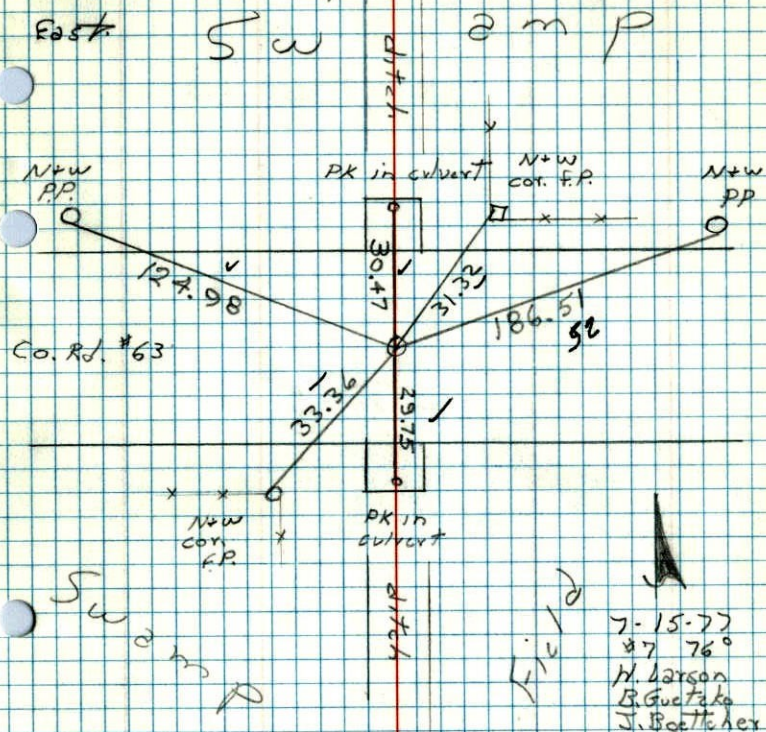 East.
Swamp
ditch
N+W
P.P.
PK in culvert
N+W
cor. f.P.
N+W
PP
124.98
30.47
31.32
186.51
52
Co. Rd. #63
33.36
29.75
N+W
cor.
F.P.
PK in
culvert
Swamp
ditch
Field
7-15-77
#7 76°
W. Larson
B. Guetzko
J. Boettcher